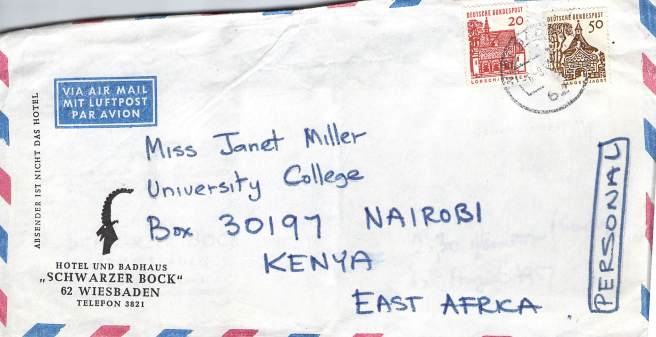 DEUTSCHE BUNDESPOST
20
LORSCH/HESSEN
DEUTSCHE BUNDESPOST
50
VIA AIR MAIL
MIT LUFTPOST
PAR AVION
ABSENDER IST NICHT DAS HOTEL
Miss Janet Miller
University College
Box 30197 NAIROBI
KENYA
EAST AFRICA
PERSONAL
HOTEL UND BADHAUS
„SCHWARZER BOCK"
62 WIESBADEN
TELEFON 3821
62